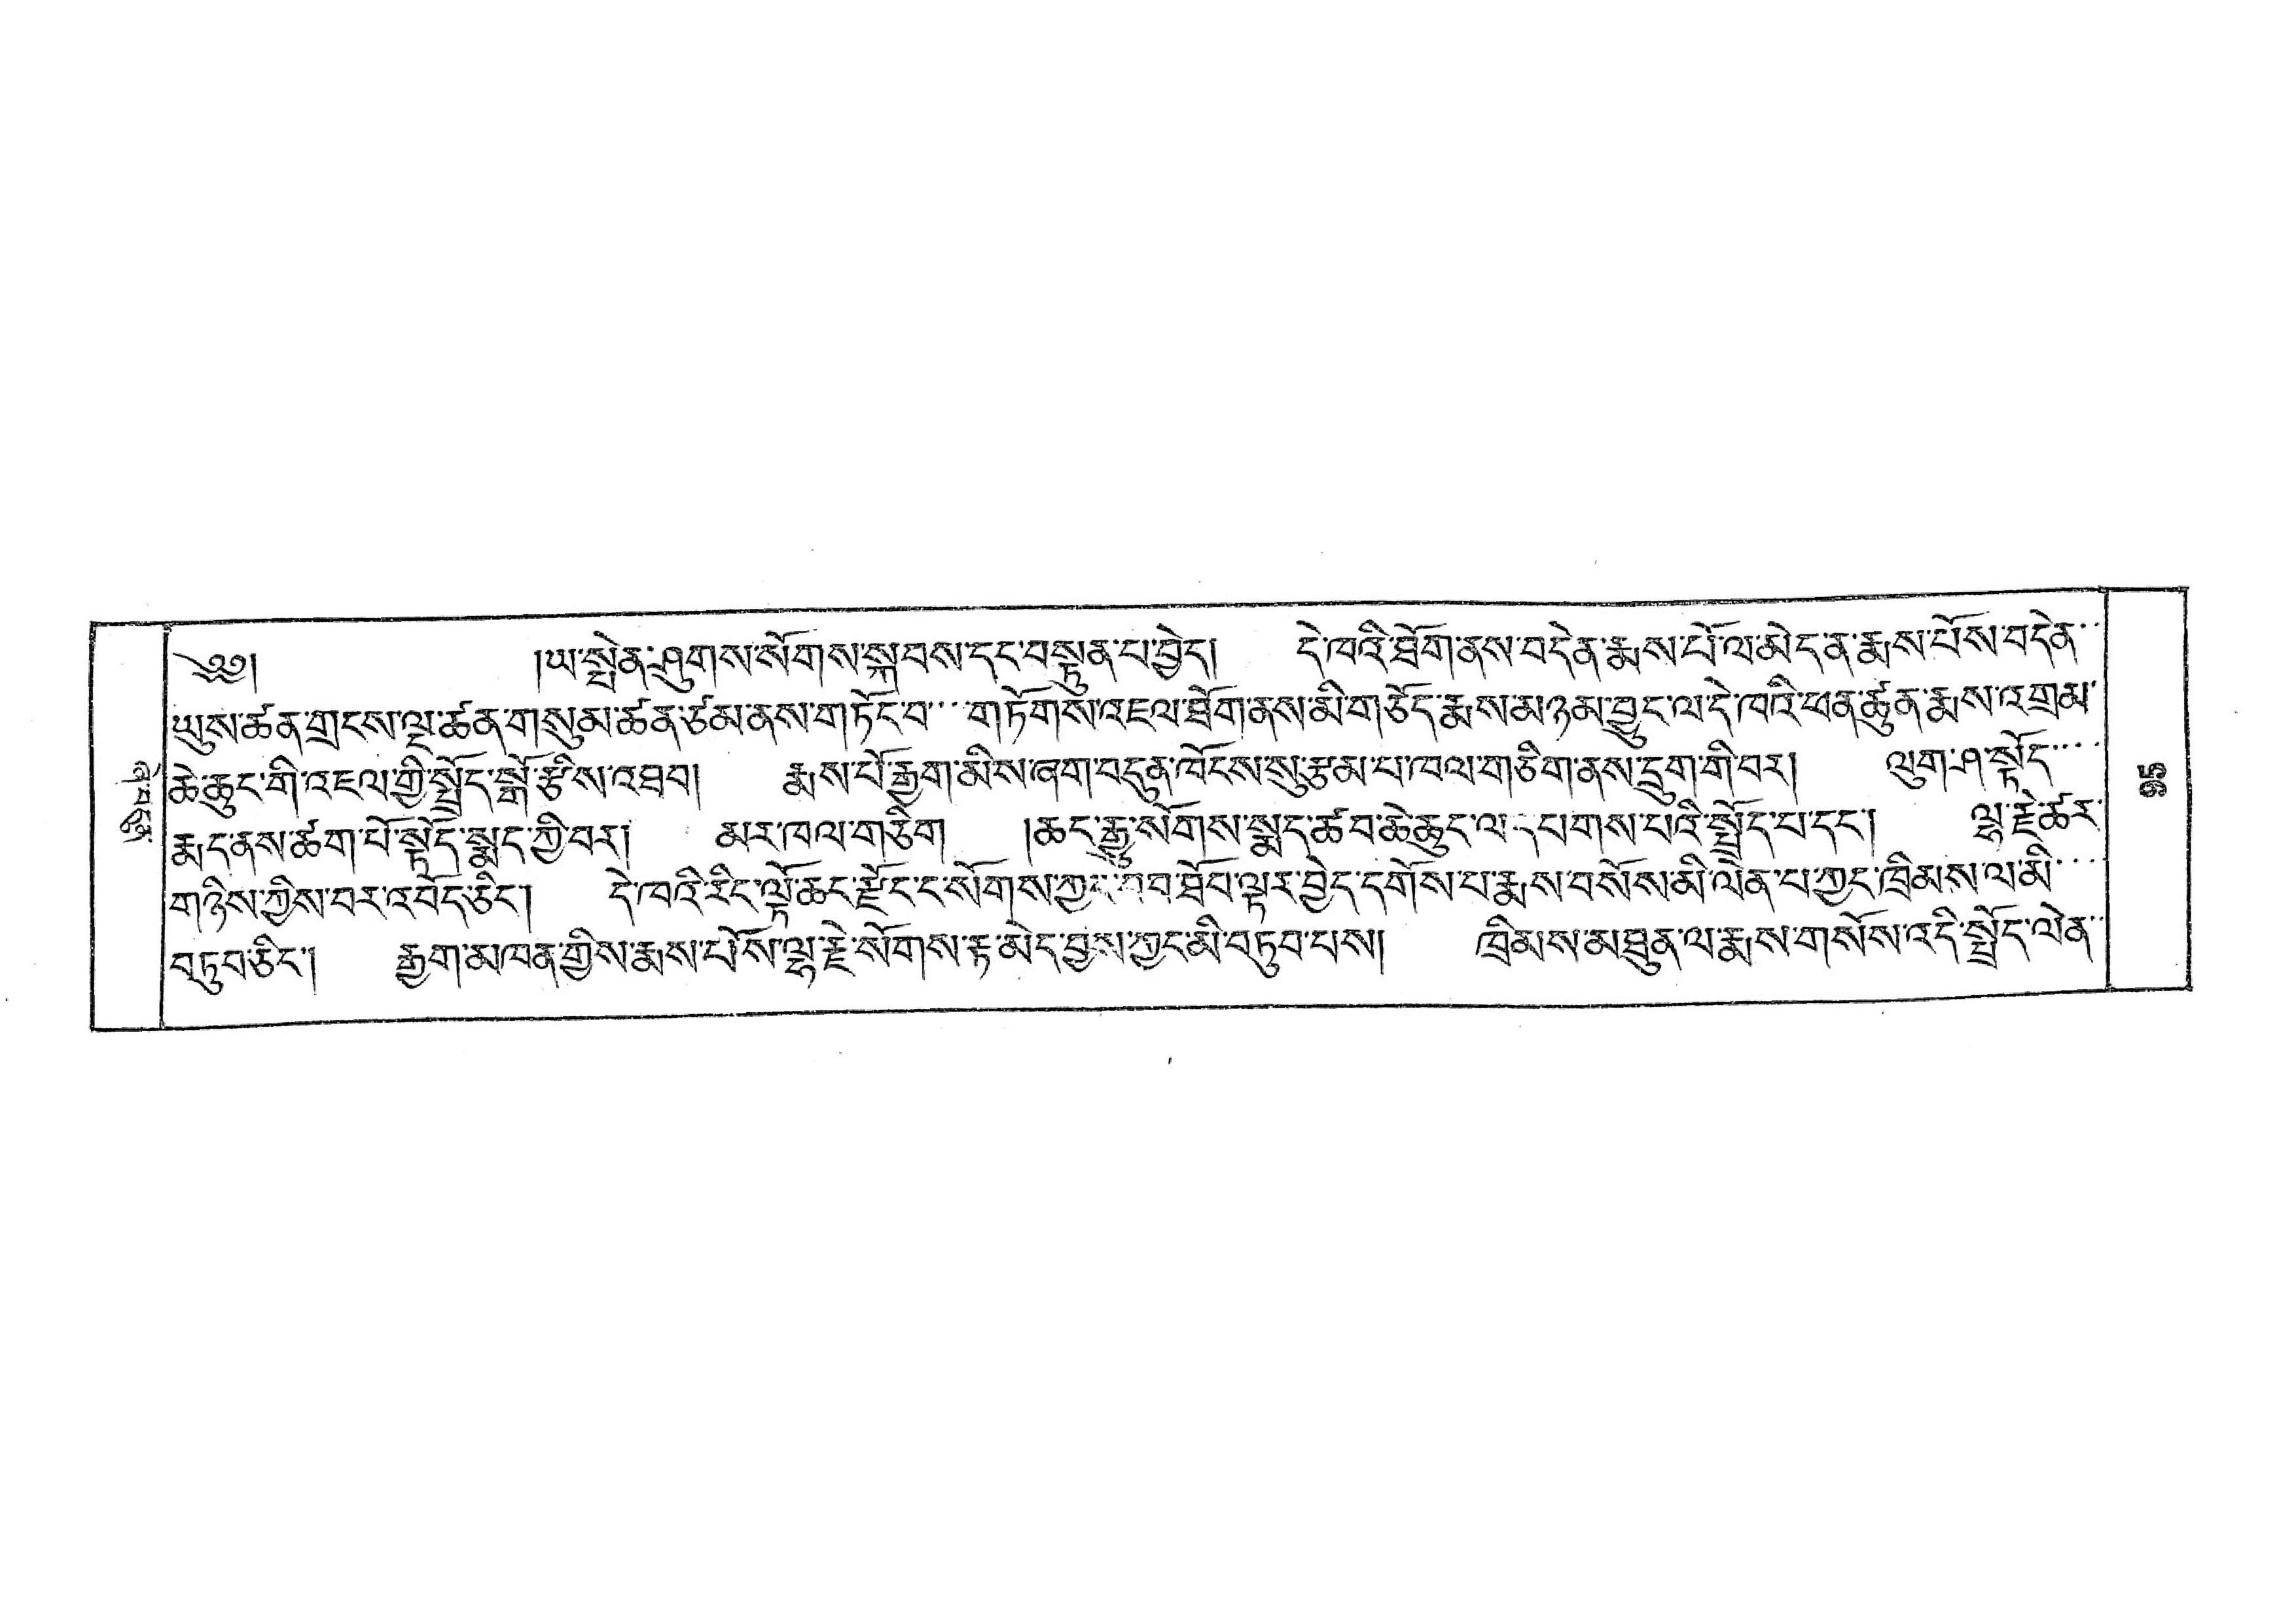 ༄༅། །ཡ་སྤྲེན་ཤུགས་སོགས་སྐབས་དང་བསྟུན་པ་བྱེད། དེ་ཁའི་ཐོག་ནས་བདེན་རྨས་པོ་ལ་མེད་ན་རྨས་པོས་བདེན་
ཡུས་ཚན་གྲངས་ལྔ་ཚན་གསུམ་ཚན་ཙམ་ནས་གཏོང་བ་་་གཏོགས་འཇལ་ཐོག་ནས་མི་གཅོད་རྨས་མ་ཉམ་བྱུང་ལ་དེ་ཁའི་ཕན་ཚུན་རྨས་འགྲམ་
ཆེ་ཆུང་གི་འཇལ་གྱི་སྤྲོད་སྒོ་རྩིས་འཐབ། རྨས་པོ་རྒྱག་མིས་ཞག་བདུན་ཁོངས་སུ་རྩམ་པ་ཁལ་གཅིག་ནས་དྲུག་གི་བར། ལུག་ཤ་སྟོད་་་་
རྨད་ནས་ཚག་པོ་སྟོད་སྨད་ཀྱི་བར། མར་ཁལ་གཅིག །ཆང་རྒྱུ་སོགས་སྨད་ཚབ་ཆེ་ཆུང་ལ་དཔགས་པའི་སྤྲོད་པ་དང་། ལྷ་རྗེ་ཚར་
གཉིས་ཀྱིས་བར་འབོད་ཅིང་། དེ་ཁའི་རིང་ལྟོ་ཆང་རྫོང་ང་སོགས་ཀྱང་ ཐོབ་ལྟར་བྱེད་དགོས་པ་རྨས་བསོས་མི་ལེན་པ་ཀྱང་ཁྲིམས་ལ་མི་་་་
བཏུབ་ཅིང་། རྒྱག་མཁན་གྱིས་རྨས་པོས་ལྷ་རྗེ་སོགས་རྟ་མེད་བྱས་ཀྱང་མི་བཏུབ་པས། ཁྲིམས་མཐུན་ལ་རྨས་གསོས་འདི་སྤྲོད་ལེན་་